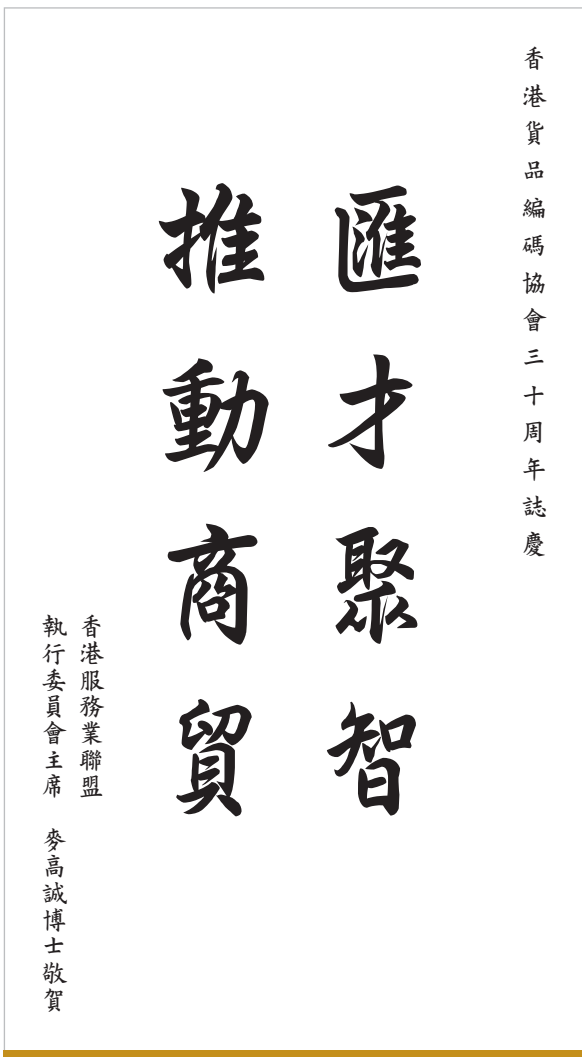 香港貨品編碼協會三十周年誌慶
匯才聚智
推動商貿
香港服務業聯盟
執行委員會主席 麥高誠博士敬賀